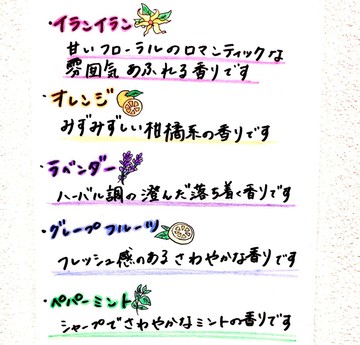 ・イランイラン
甘いフローラルのロマンティックな
雰囲気あふれる香りです
・オレンジ
みずみずしい柑橘系の香りです
・ラベンダー
ハーバル調の澄んだ落ち着く香りです
・グレープフルーツ
フレッシュ感のあるさわやかな香りです
・ペパーミント
シャープでさわやかなミントの香りです